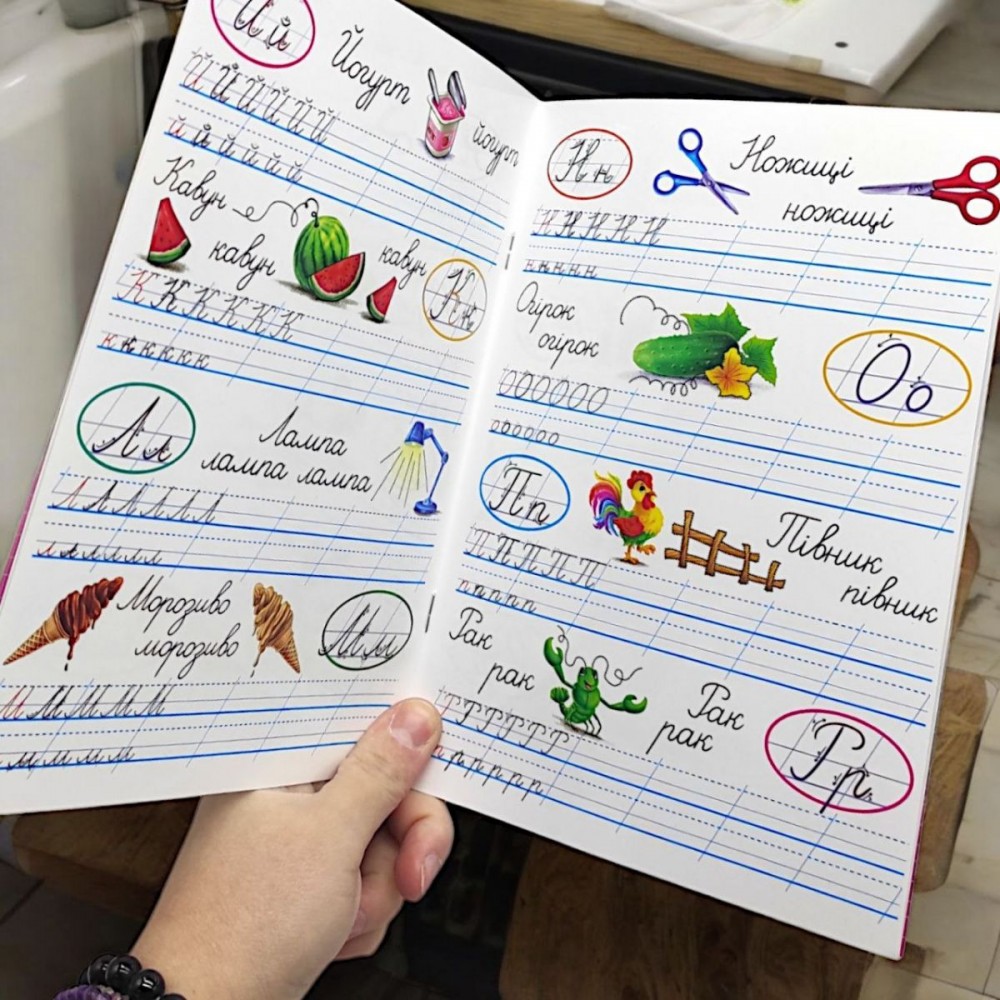 Й й
Йогурт
йогурт
Й Й Й Й Й Й
й й й й й й
Кавун
кавун
кавун
К к
К К К К К К К
к к к к к к
Л л
Лампа
лампа лампа
Л Л Л Л Л Л
л л л л л л
Морозиво
морозиво
М м
М М М М М
м м м м м
Н н
Ножиці
ножиці
Н Н Н Н Н
н н н н н
Огірок
огірок
О о
О О О О О О
о о о о о о
П п
Півник
півник
П П П П П
п п п п п
Рак
рак
Рак
рак
Р р
Р Р Р Р Р Р
р р р р р р